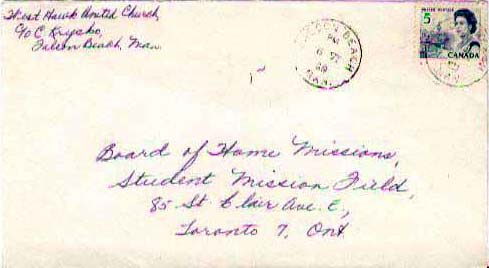 West Hawk United Church,
c/o C. Krysko,
Falcon Beach, Man.
FALCON BEACH
PM
6 VI
68
MAN.
5
CANADA
Board of Home Missions,
Student Mission Field,
85 St. Clair Ave. E,
Toronto 7, Ont.